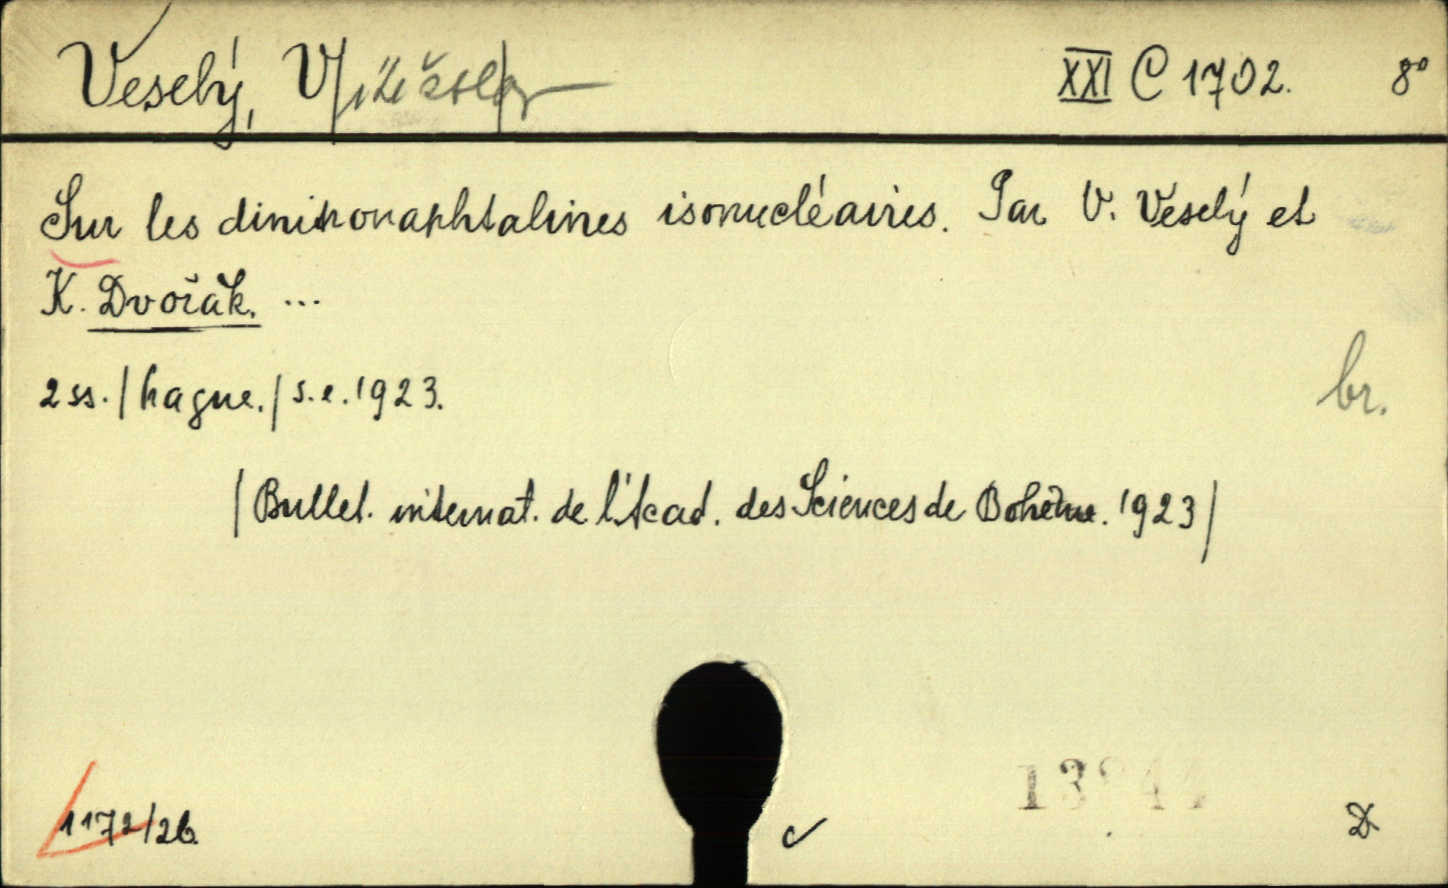 Veselý, V/ítězsla/v XXI C 1702. 8°
Sur les dinitronaphtalines isonucléaires. Par V. Veselý et
K. Dvořák. ...
2 ss. /Prague./ s.e. 1923.
br.
/Bullet. internat. de l'Acad. des Sciences de Bohème. 1923/
1172/26.